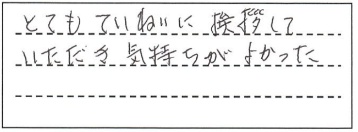 とてもていねいに挨拶して
いただき気持ちがよかった